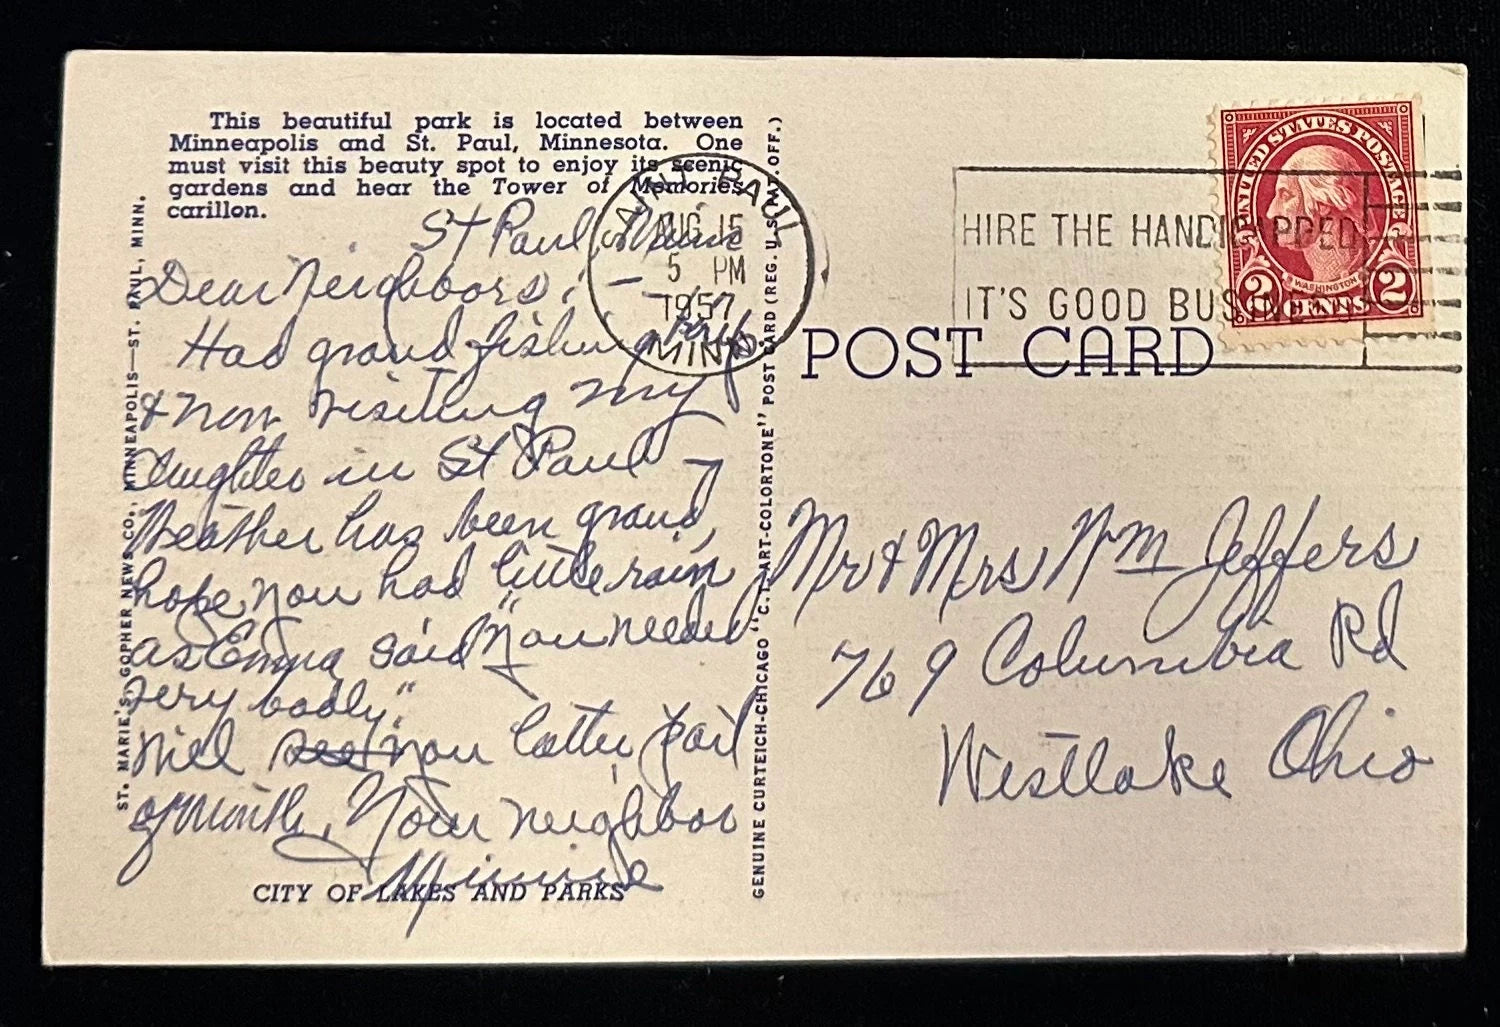 This beautiful park is located between
Minneapolis and St. Paul, Minnesota. One
must visit this beauty spot to enjoy its scenic
gardens and hear the Tower of Memories
carillon.
St Paul, Minn
Dear Neighbors: —
Had grand fishing
& now visiting my
daughter in St Paul
Weather has been grand,
hope you had little rain
as Emma said "you needed
very badly"
Will see you latter part
of month, Your neighbor
Minnie
CITY OF LAKES AND PARKS
ST. MARIE'S GOPHER NEWS CO., MINNEAPOLIS—ST. PAUL, MINN.
GENUINE CURTEICH-CHICAGO "C.T. ART-COLORTONE" POST CARD (REG. U.S. PAT. OFF.)
SAINT PAUL
AUG 15
5 PM
1957
MINN.
HIRE THE HANDICAPPED
IT'S GOOD BUSINESS
UNITED STATES POSTAGE
WASHINGTON
2 CENTS 2
POST CARD
Mr & Mrs Wm Jeffers
769 Columbia Rd
Westlake Ohio